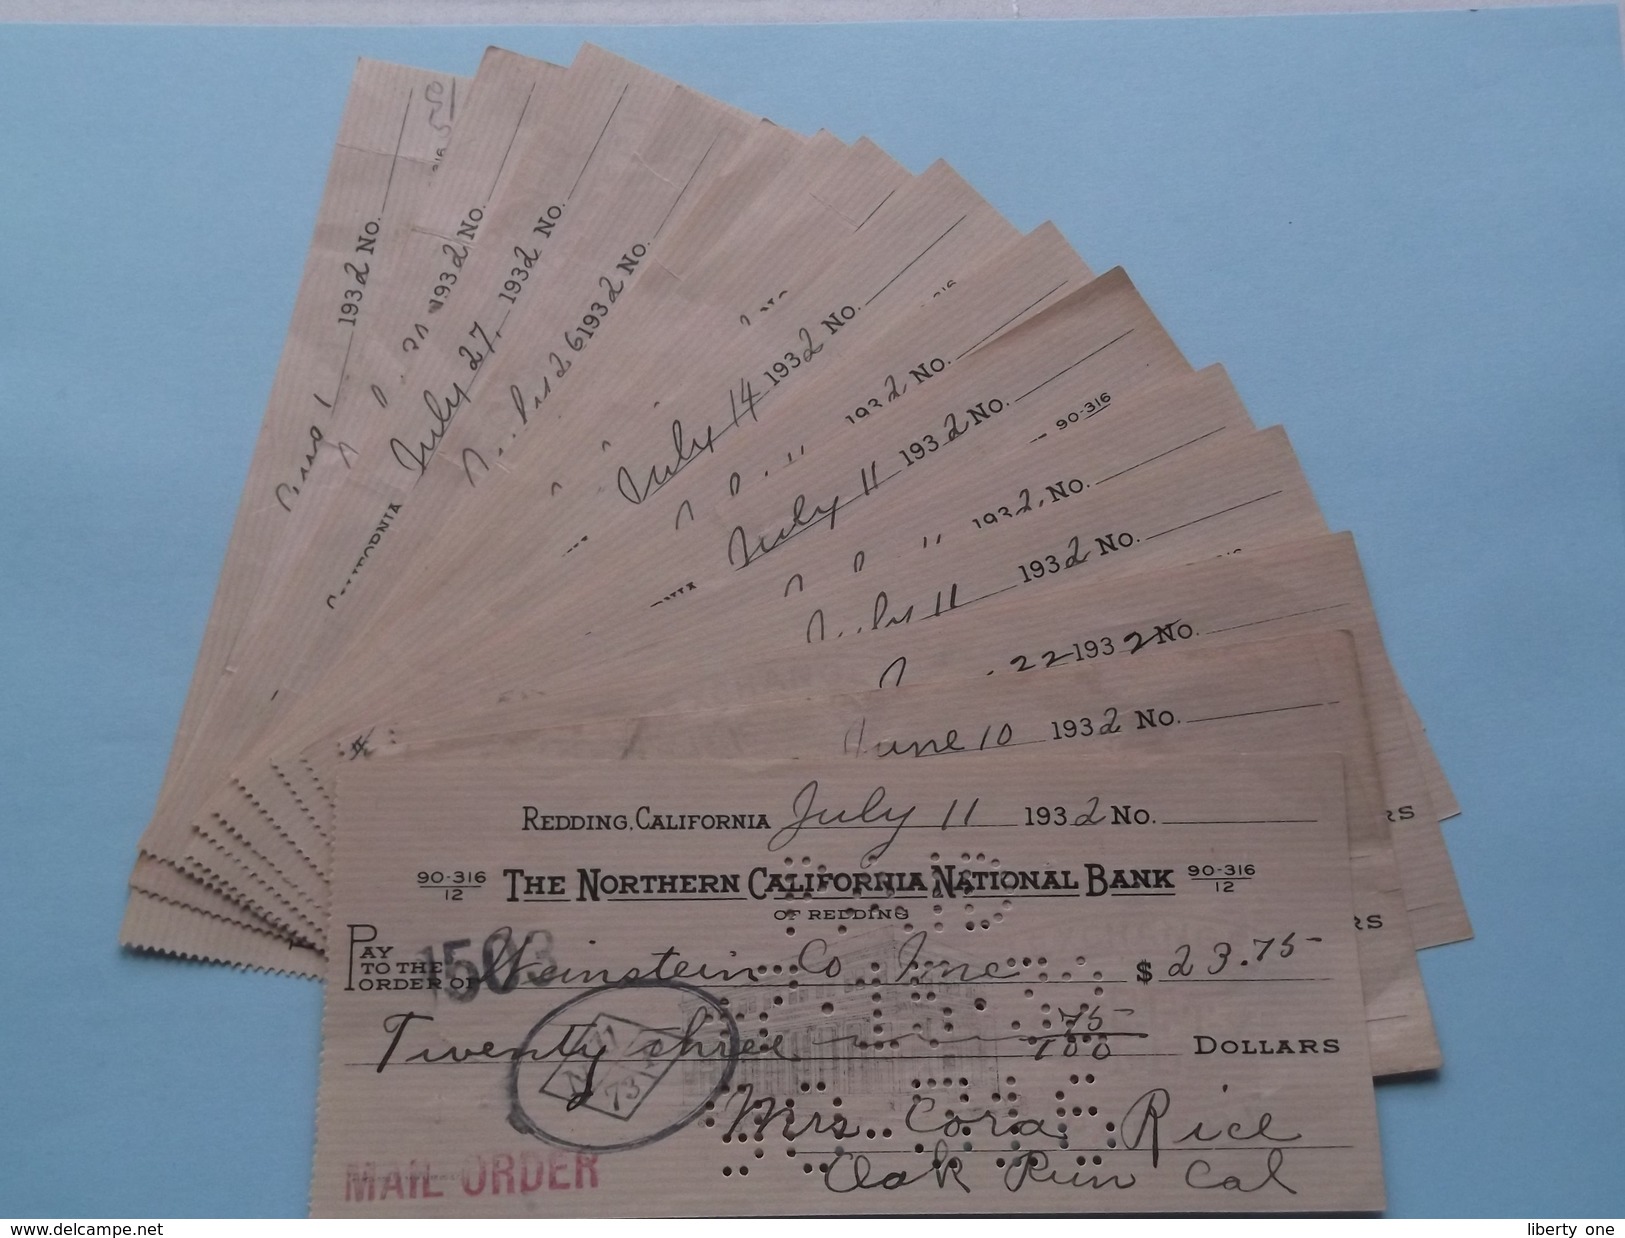 50
5
1932 No.
1932 No.
July 27, 1932 No.
26 1932 No.
July 14 1932 No.
1932 No.
July 11 1932 No.
90-316
1932 No.
11 1932 No.
22 1932 No.
June 10 1932 No.
RS
RS
REDDING, CALIFORNIA July 11 1932 No.
90-316 THE NORTHERN CALIFORNIA NATIONAL BANK 90-316
12 12
OF REDDING
PAY TO THE ORDER OF Weinstein Co Inc $ 23.75
1503
Twenty three 75/100 DOLLARS
73
Mrs. Cora Rice
MAIL ORDER
Oak Run Cal
www.delcampe.net
liberty one